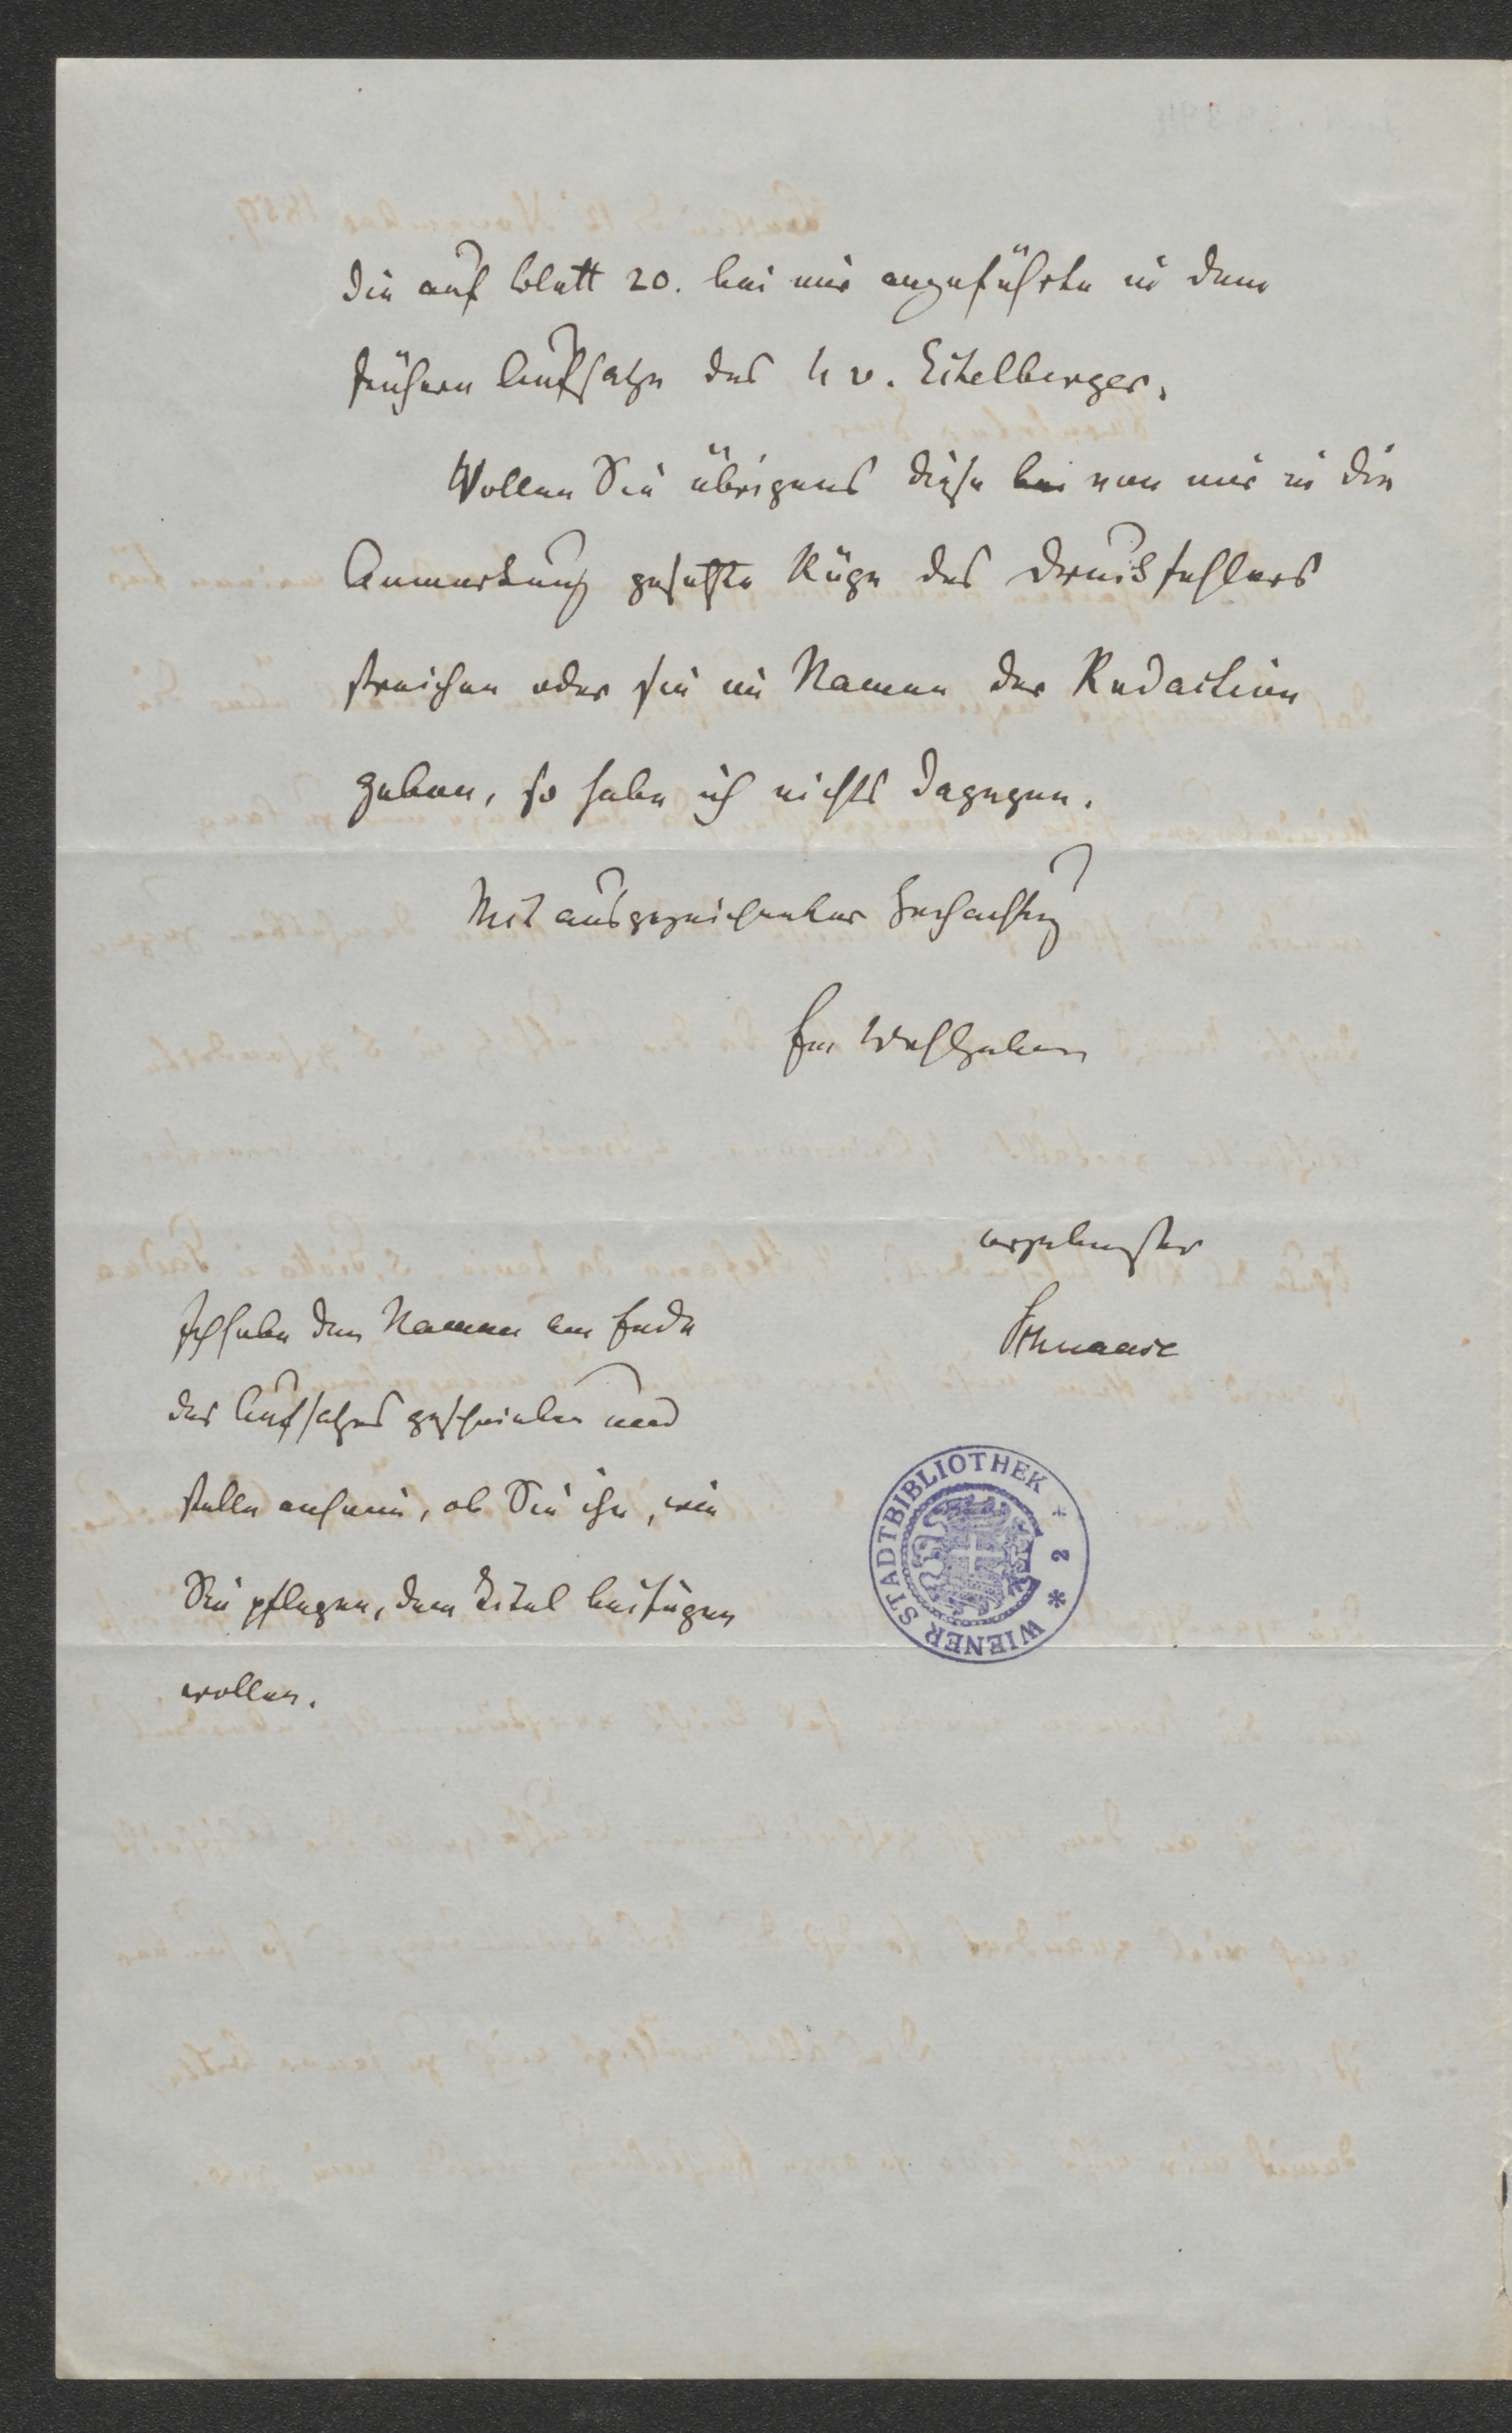 die auf Blatt 20. bei mir angeführte in dem
frühern Aufsatze des H v. Eitelberger.
Wollen Sie übrigens diese bei von mir in die
Anmerkung gesetzte Rüge des Druckfehlers
streichen oder sie im Namen der Redaction
geben, so habe ich nichts dagegen.
Mit ausgezeichneter Hochachtung
Ew Wohlgeboren
ergebenster
Schnaase
Ich habe den Namen am Ende
des Aufsatzes geschrieben und
stelle anheim, ob Sie ihn, wie
Sie pflegen, dem Titel beifügen
wollen.
WIENER STADTBIBLIOTHEK * 2 *